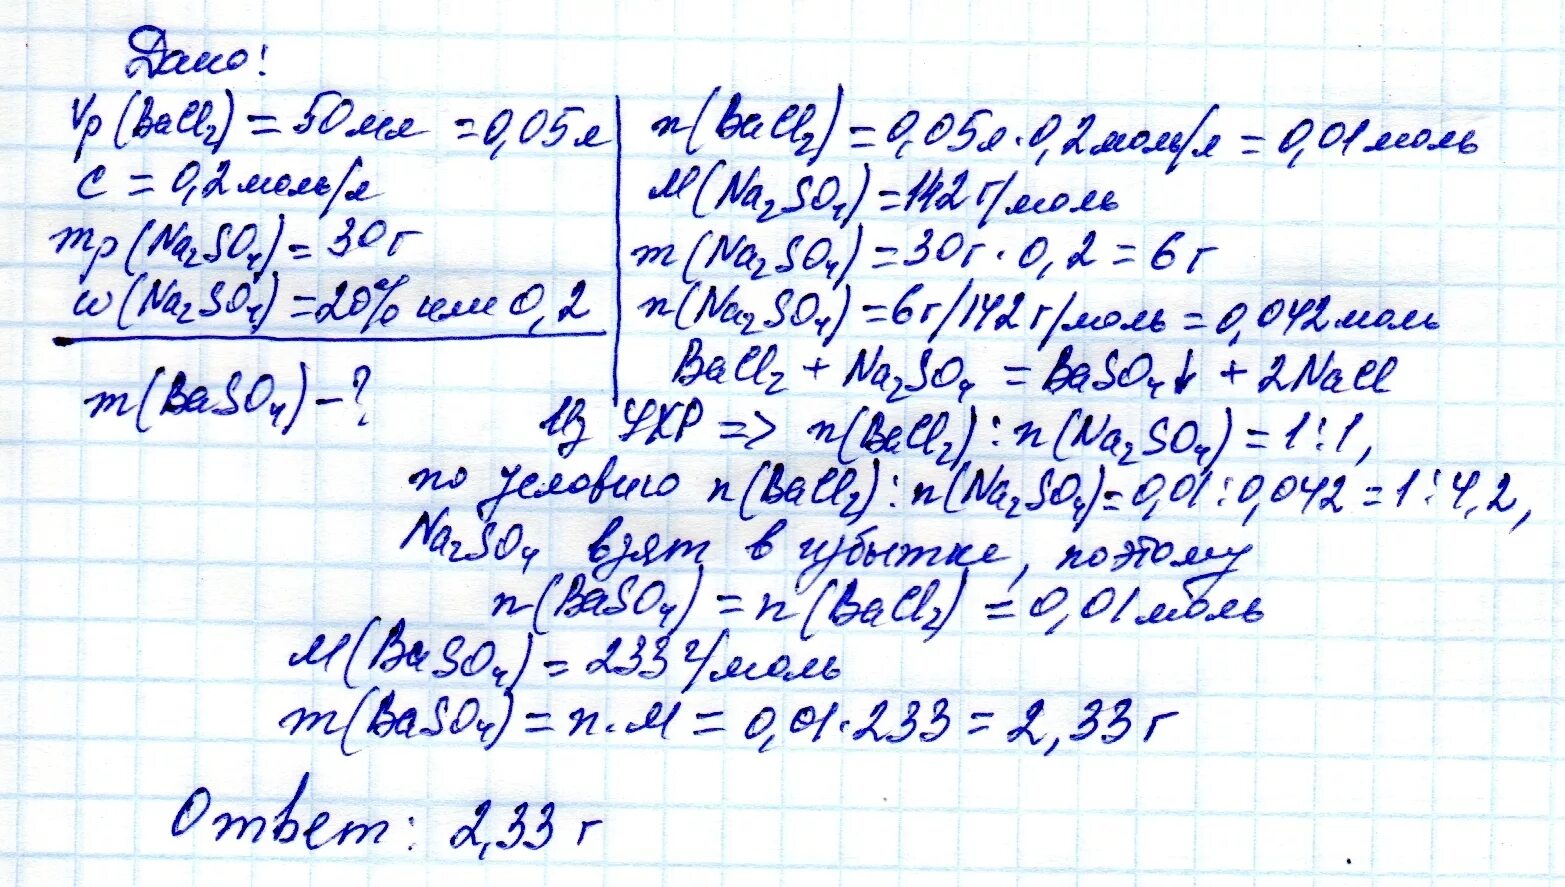 Дано:
Vр(BaCl₂) = 50 мл = 0,05 л
c = 0,2 моль/л
mр(Na₂SO₄) = 30 г
w(Na₂SO₄) = 20% или 0,2
m(BaSO₄) - ?
n(BaCl₂) = 0,05 л · 0,2 моль/л = 0,01 моль
M(Na₂SO₄) = 142 г/моль
m(Na₂SO₄) = 30 г · 0,2 = 6 г
n(Na₂SO₄) = 6 г/142 г/моль = 0,042 моль
BaCl₂ + Na₂SO₄ = BaSO₄↓ + 2NaCl
Из УХР => n(BaCl₂) : n(Na₂SO₄) = 1 : 1,
по условию n(BaCl₂) : n(Na₂SO₄) = 0,01 : 0,042 = 1 : 4,2,
Na₂SO₄ взят в избытке, поэтому
n(BaSO₄) = n(BaCl₂) = 0,01 моль
M(BaSO₄) = 233 г/моль
m(BaSO₄) = n · M = 0,01 · 233 = 2,33 г
Ответ: 2,33 г